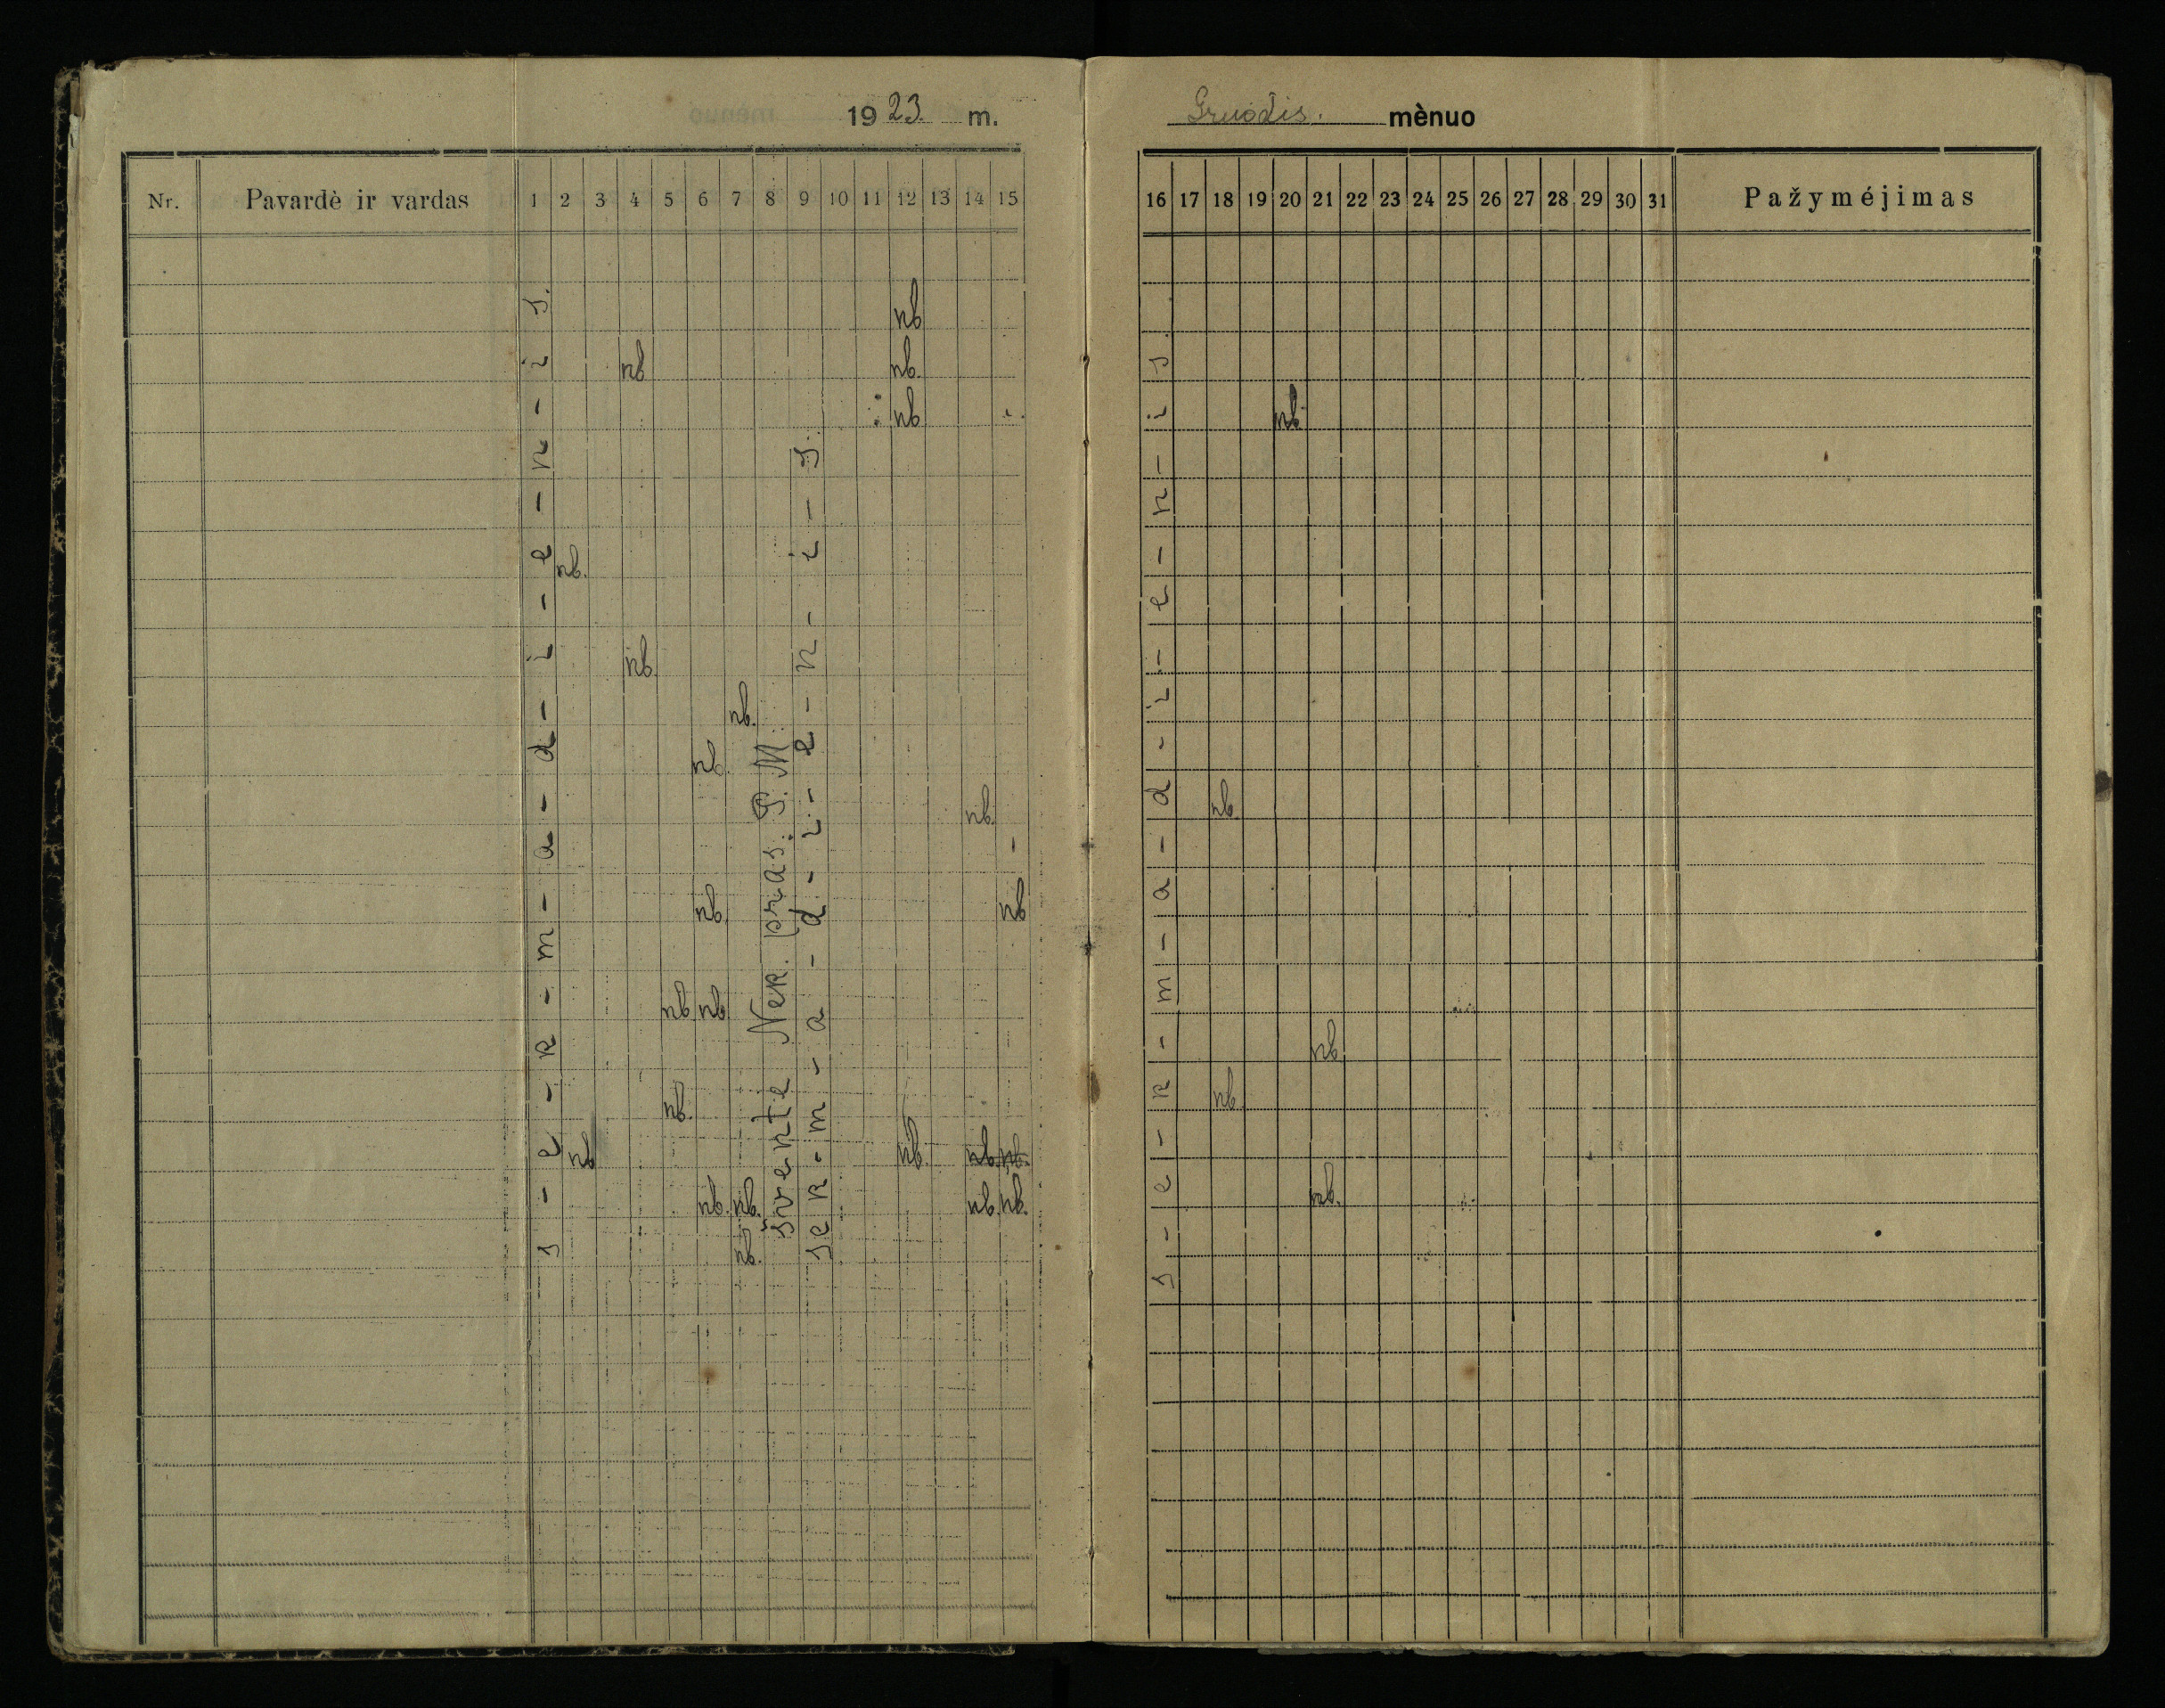 1923. m.
Gruodis. mènuo
Nr. Pavardė ir vardas 1 2 3 4 5 6 7 8 9 10 11 12 13 14 15
16 17 18 19 20 21 22 23 24 25 26 27 28 29 30 31 Pažymėjimas
s-e-k-m-a-d-i-e-n-i-s.
švente Nek. pras. P. M.
sek-m-a-d-i-e-n-i-s.
s-e-k-m-a-d-i-e-n-i-s.
nb
nb nb.
nb nb
nb.
nb.
nb.
nb.
nb. nb.
nb. nb
nb. nb
nb.
nb. nb.
nb nb. nb. nb.
nb. nb. nb. nb. nb.
nb.